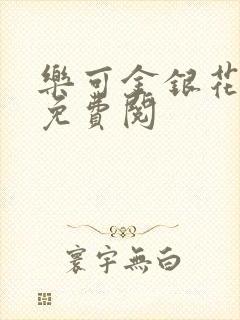 樂可金銀花
免費閱
寰宇無白